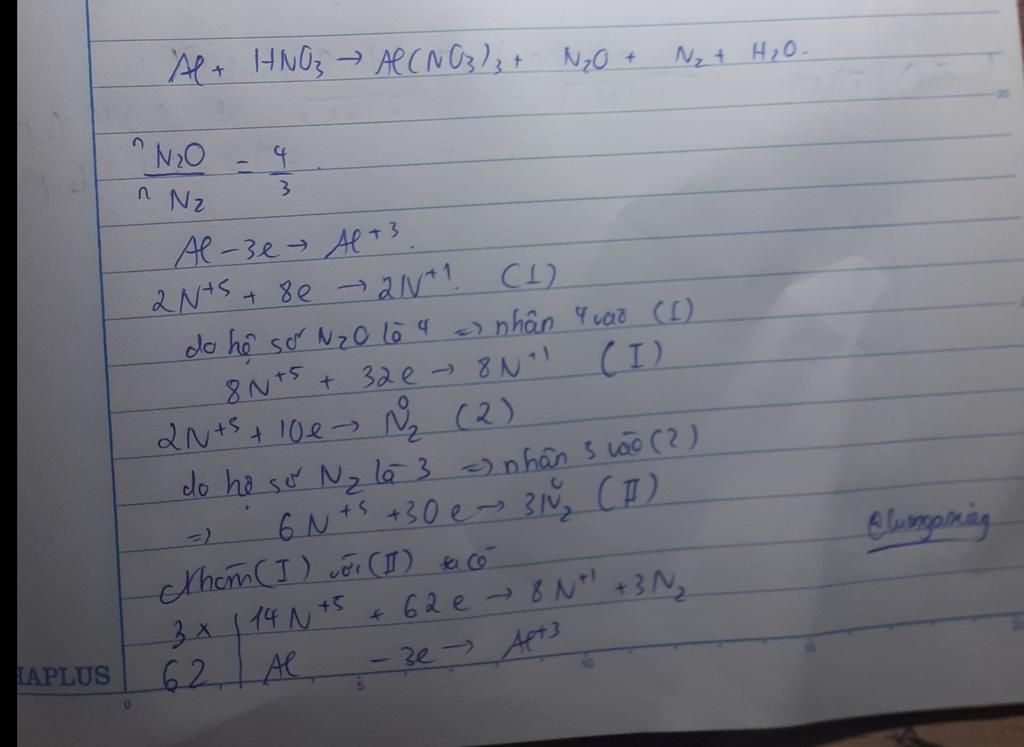 Al + HNO3 → Al(NO3)3 + N2O + N2 + H2O.
20
nN2O / nN2 = 4/3.
Al - 3e → Al+3.
2N+5 + 8e → 2N+1. (1)
do hệ số N2O là 4 => nhân 4 vào (1)
8N+5 + 32e → 8N+1 (I)
2N+5 + 10e → N02 (2)
do hệ số N2 là 3 => nhân 3 vào (2)
=> 6N+5 + 30e → 3N02 (II)
Nhóm (I) với (II) ta có
3 x | 14N+5 + 62e → 8N+1 + 3N2
62 | Al - 3e → Al+3
HAPLUS
0 5 10 15 20